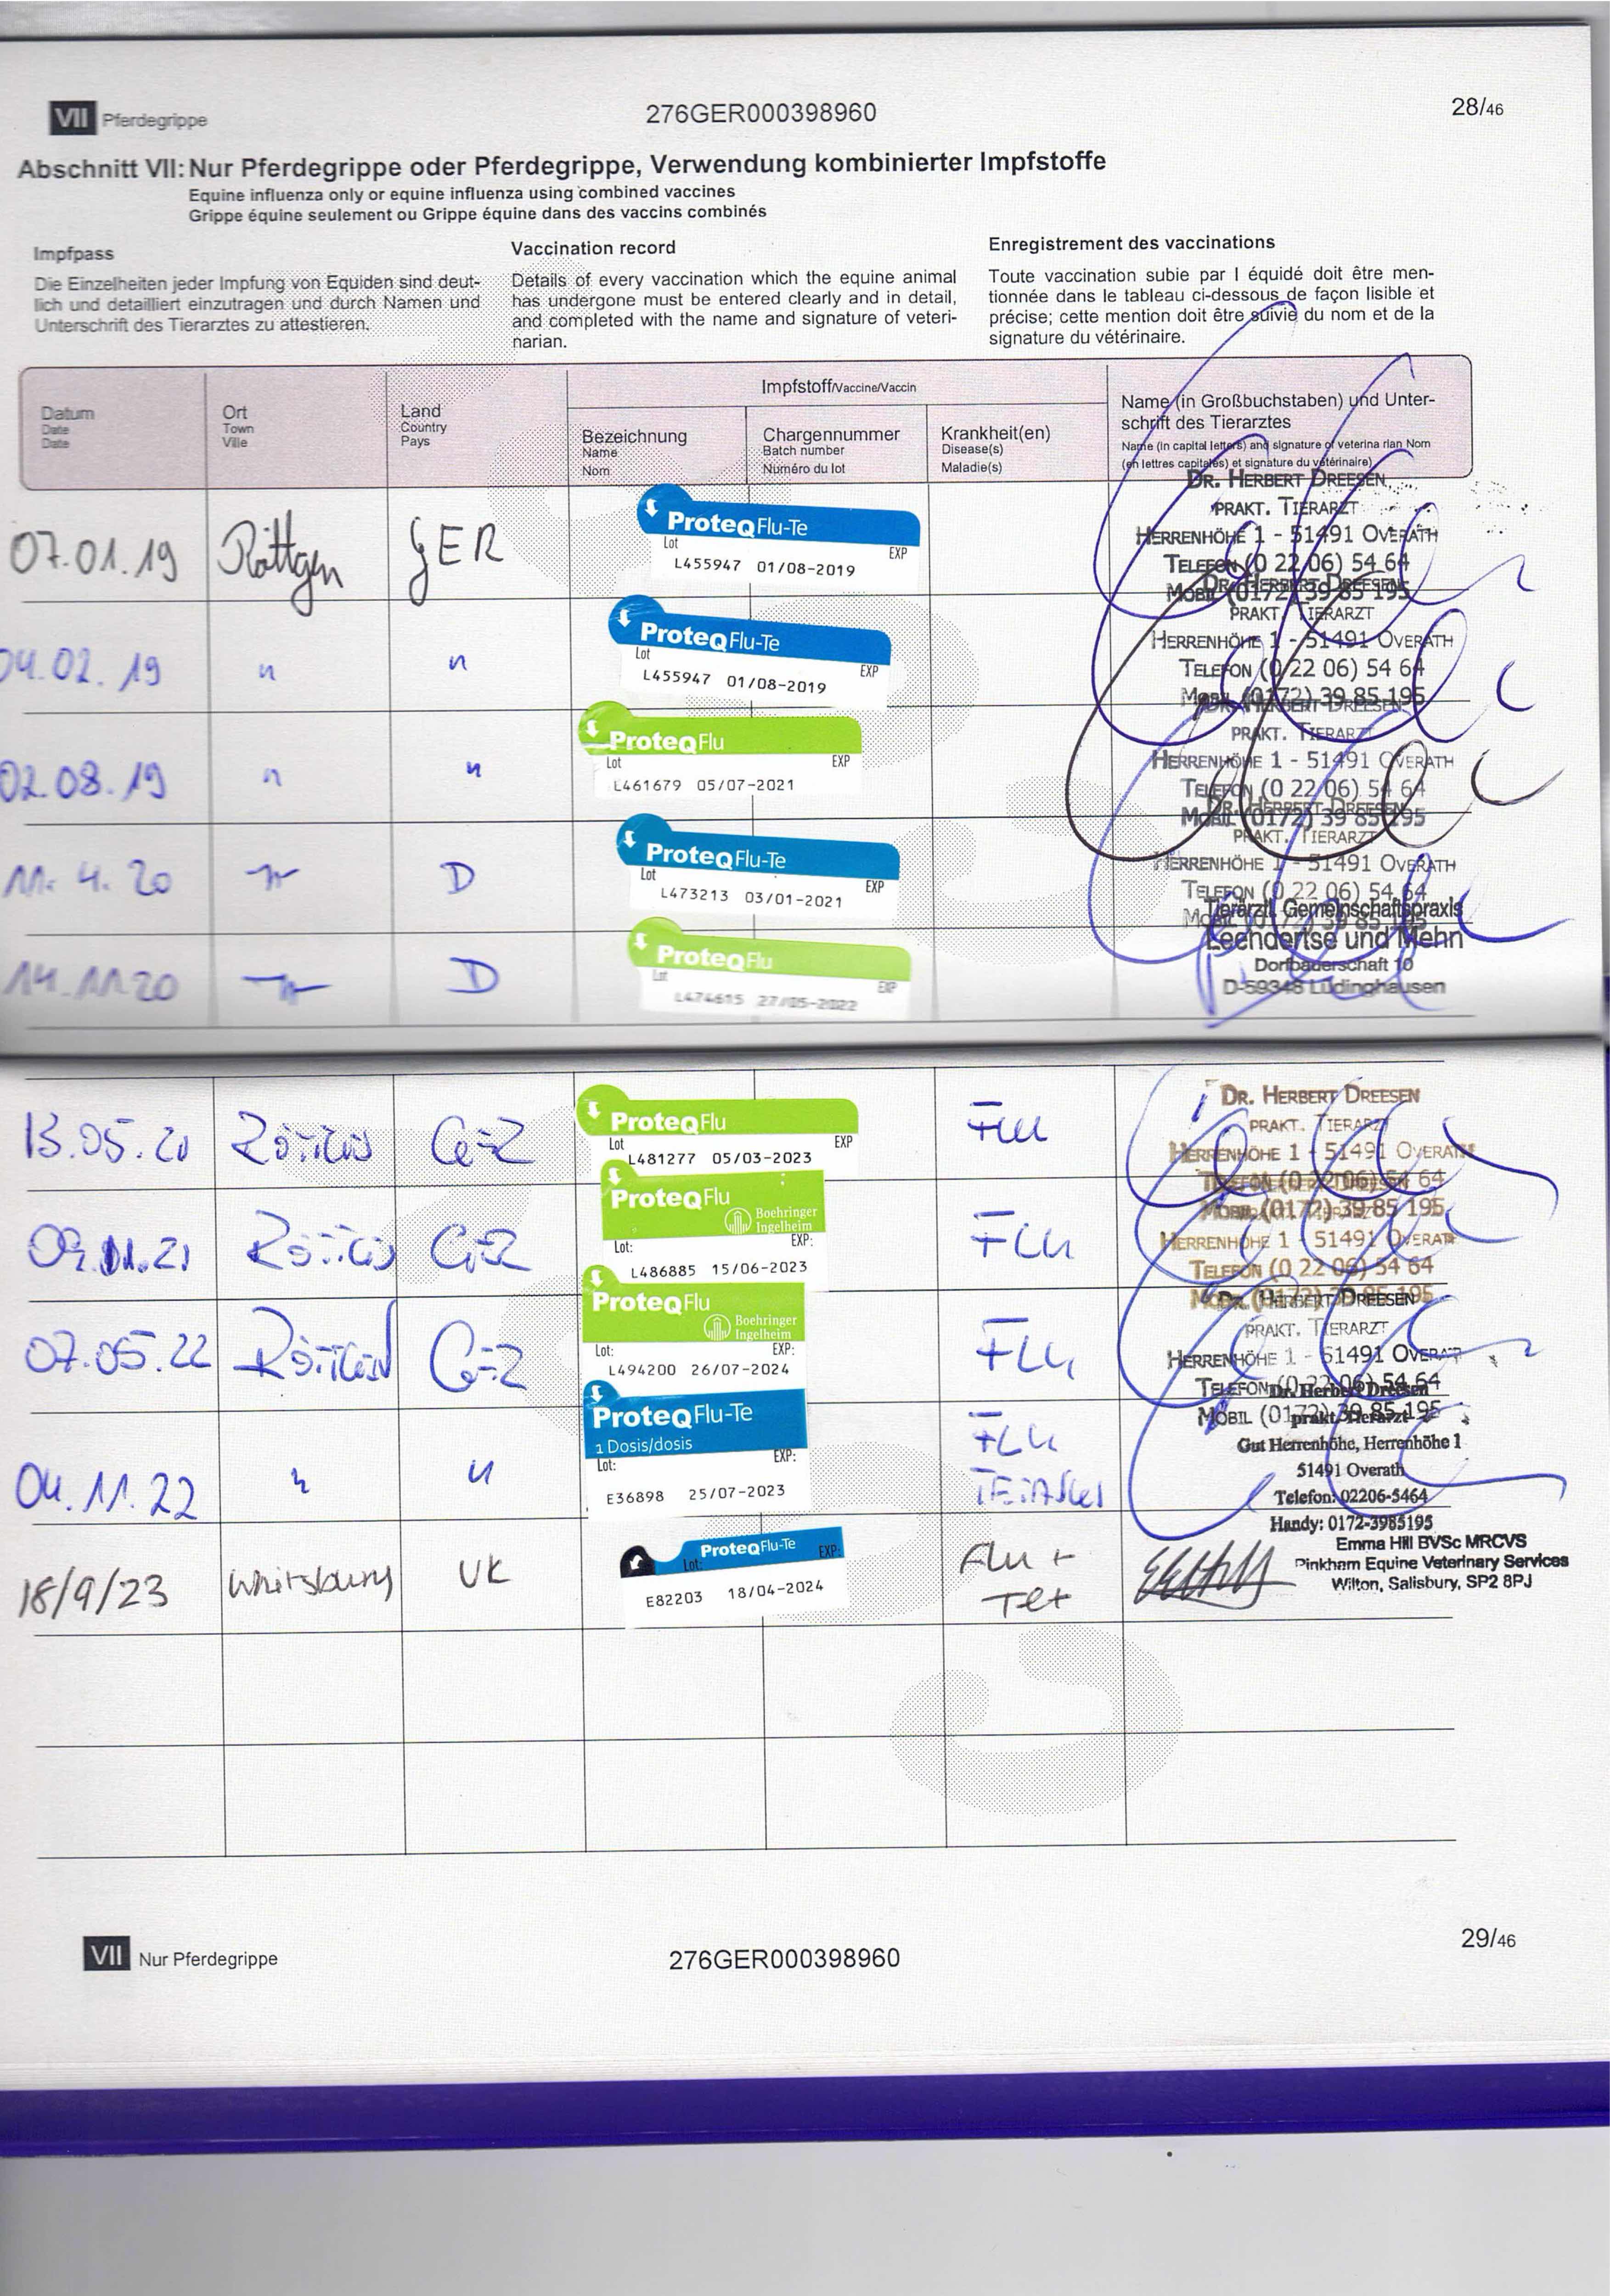 VII Pferdegrippe
276GER000398960
28/46
Abschnitt VII: Nur Pferdegrippe oder Pferdegrippe, Verwendung kombinierter Impfstoffe
Equine influenza only or equine influenza using combined vaccines
Grippe équine seulement ou Grippe équine dans des vaccins combinés
Impfpass
Die Einzelheiten jeder Impfung von Equiden sind deut-
lich und detailliert einzutragen und durch Namen und
Unterschrift des Tierarztes zu attestieren.
Vaccination record
Details of every vaccination which the equine animal
has undergone must be entered clearly and in detail,
and completed with the name and signature of veteri-
narian.
Enregistrement des vaccinations
Toute vaccination subie par l équidé doit être men-
tionnée dans le tableau ci-dessous de façon lisible et
précise; cette mention doit être suivie du nom et de la
signature du vétérinaire.
Datum
Date
Date
Ort
Town
Ville
Land
Country
Pays
Impfstoff/Vaccine/Vaccin
Bezeichnung
Name
Nom
Chargennummer
Batch number
Numéro du lot
Krankheit(en)
Disease(s)
Maladie(s)
Name (in Großbuchstaben) und Unter-
schrift des Tierarztes
Name (in capital letters) and signature of veterina rian Nom
(en lettres capitales) et signature du vétérinaire)
07.01.19 Röttgen GER
ProteqFlu-Te
Lot EXP
L455947 01/08-2019
DR. HERBERT DREESEN
PRAKT. TIERARZT
HERRENHÖHE 1 - 51491 OVERATH
TELEFON (0 22 06) 54 64
MOBIL (0172) 39 85 195
04.02.19 " "
ProteqFlu-Te
Lot EXP
L455947 01/08-2019
DR. HERBERT DREESEN
PRAKT. TIERARZT
HERRENHÖHE 1 - 51491 OVERATH
TELEFON (0 22 06) 54 64
MOBIL (0172) 39 85 195
02.08.19 " "
ProteqFlu
Lot EXP
L461679 05/07-2021
DR. HERBERT DREESEN
PRAKT. TIERARZT
HERRENHÖHE 1 - 51491 OVERATH
TELEFON (0 22 06) 54 64
MOBIL (0172) 39 85 195
11. 4. 20 D
ProteqFlu-Te
Lot EXP
L473213 03/01-2021
DR. HERBERT DREESEN
PRAKT. TIERARZT
HERRENHÖHE 1 - 51491 OVERATH
TELEFON (0 22 06) 54 64
14.11.20 D
ProteqFlu
Lot EXP
L474615 27/05-2022
Tierärztl. Gemeinschaftspraxis
Leendertse und Mehn
Dorfbauerschaft 10
D-59348 Lüdinghausen
ProteqFlu
Lot EXP
L481277 05/03-2023
Flu
DR. HERBERT DREESEN
PRAKT. TIERARZT
HERRENHÖHE 1 - 51491 OVERATH
TELEFON (0 22 06) 54 64
MOBIL (0172) 39 85 195
ProteqFlu
Boehringer
Ingelheim
Lot: EXP:
L486885 15/06-2023
Flu
HERRENHÖHE 1 - 51491 OVERATH
TELEFON (0 22 06) 54 64
07.05.22
ProteqFlu
Boehringer
Ingelheim
Lot: EXP:
L494200 26/07-2024
Flu
DR. HERBERT DREESEN
PRAKT. TIERARZT
HERRENHÖHE 1 - 51491 OVERATH
TELEFON (0 22 06) 54 64
MOBIL (0172) 39 85 195
04.11.22 " "
ProteqFlu-Te
1 Dosis/dosis
Lot: EXP:
E36898 25/07-2023
Flu
Dr. Herbert Dreesen
prakt. Tierarzt
Gut Herrenhöhe, Herrenhöhe 1
51491 Overath
Telefon: 02206-5464
Handy: 0172-3985195
18/9/23 Whitsbury UK
ProteqFlu-Te
Lot: EXP:
E82203 18/04-2024
Flu +
Tet
Emma Hill BVSc MRCVS
Pinkham Equine Veterinary Services
Wilton, Salisbury, SP2 8PJ
VII Nur Pferdegrippe
276GER000398960
29/46